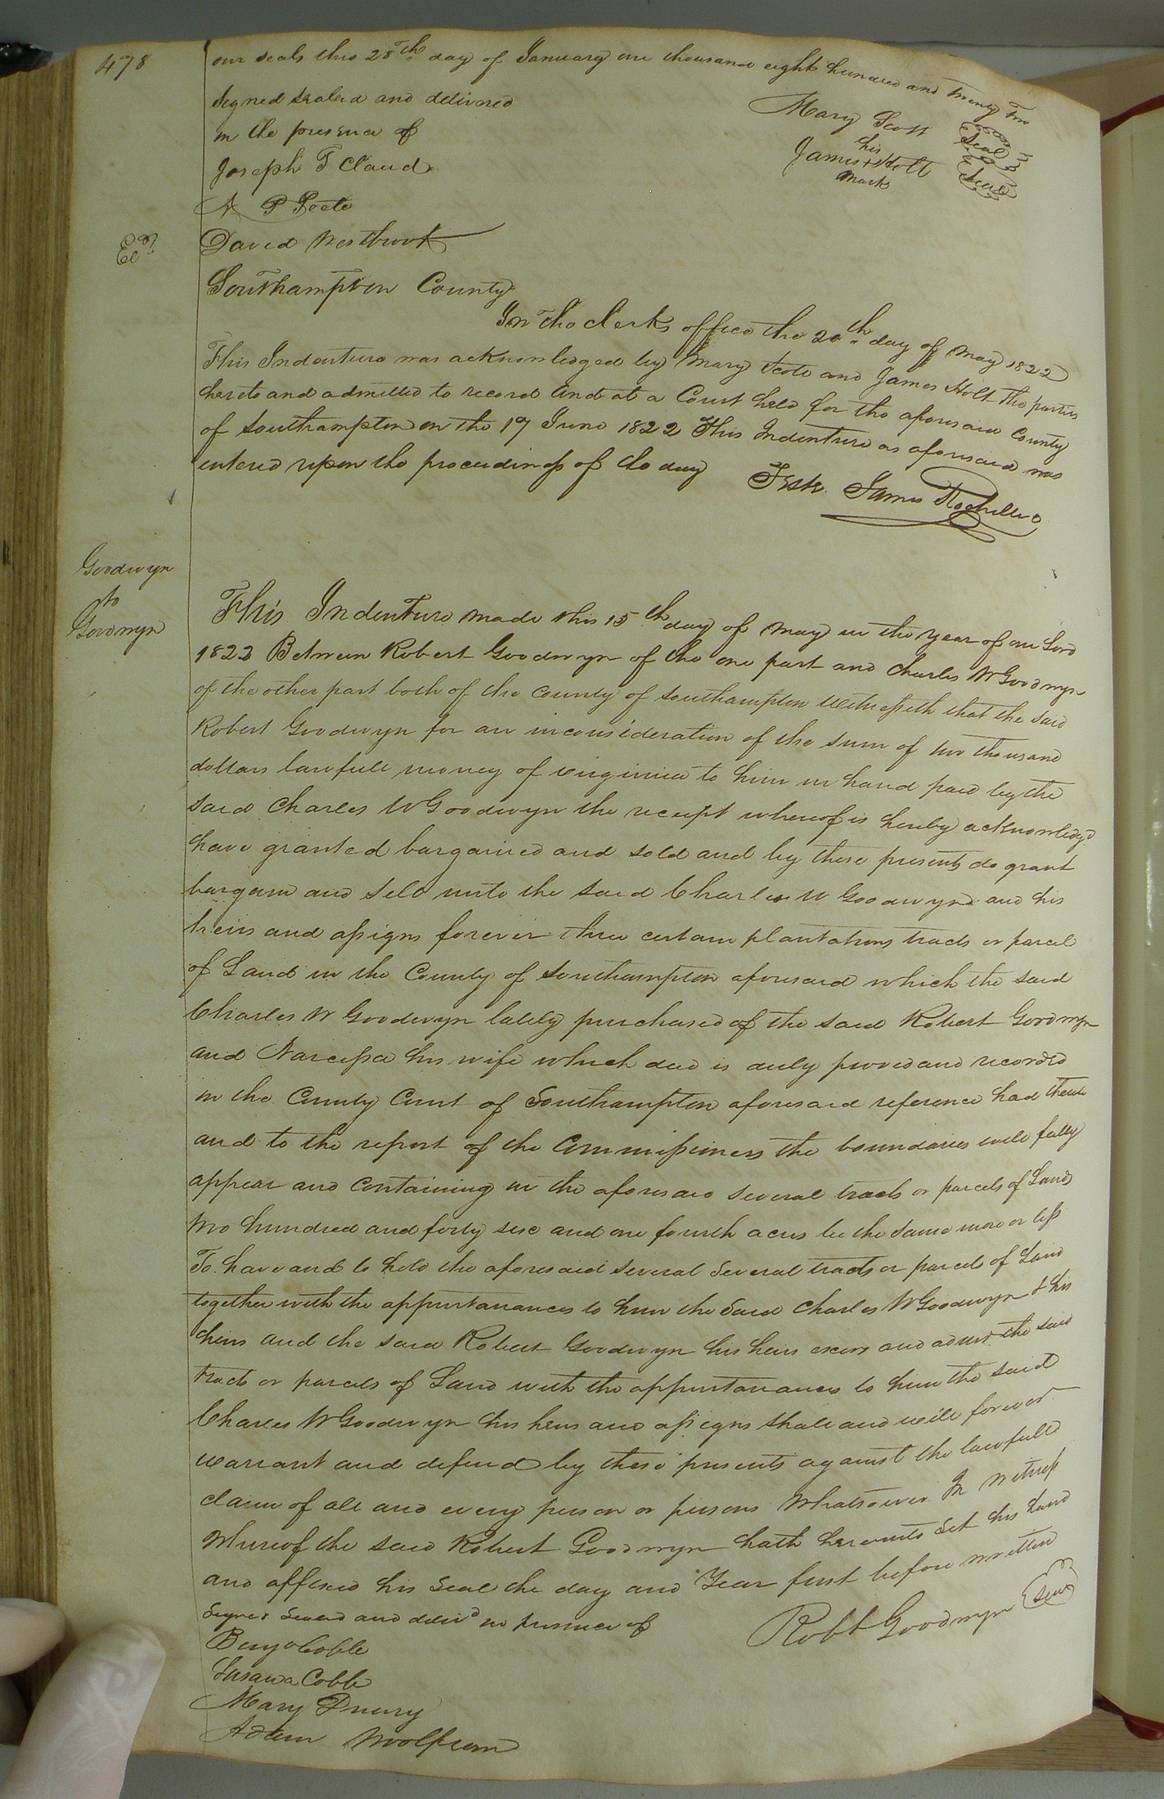 478
our seals this 28th day of January one thousand eight hundred and twenty two
Signed sealed and delivered
in the presence of
Joseph T Claud
David Westbrook
Mary Scott Seal
his
James + Holt Seal
mark
Southampton County
In the clerks office the 20th day of May 1822
This Indenture was acknowledged by Mary Scott and James Holt the parties
hereto and admitted to record And at a Court held for the aforesaid County
of Southampton on the 17 June 1822 This Indenture as aforesaid was
entered upon the proceedings of the day Teste. James Rochelle
Goodwyn
to
Goodwyn
This Indenture made this 15th day of May in the year of our Lord
1822 Between Robert Goodwyn of the one part and Charles W Goodwyn
of the other part both of the County of Southampton Witnesseth that the said
Robert Goodwyn for an inconsideration of the sum of two thousand
dollars lawfull money of virginia to him in hand paid by the
said Charles W Goodwyn the receipt whereof is hereby acknowledged
have granted bargained and sold and by these presents do grant
bargain and sell unto the said Charles W Goodwyn and his
heirs and assigns forever three certain plantations tracts or parcel
of Land in the County of Southampton aforesaid which the said
Charles W Goodwyn lately purchased of the said Robert Goodwyn
and Narcissa his wife which deed is duly proved and recorded
in the County Court of Southampton aforesaid reference had thereto
and to the report of the Commissioners the boundaries will fully
appear and Containing in the aforesaid several tracts or parcels of Land
two hundred and forty six and one fourth acres be the same more or less
To have and to hold the aforesaid several several tracts or parcels of Land
together with the appurtanances to him the said Charles W Goodwyn & his
heirs and the said Robert Goodwyn his heirs exors and admrs the said
tracts or parcels of Land with the appurtanances to him the said
Charles W Goodwyn his heirs and assigns shall and will forever
warrant and defend by these presents against the lawfull
claim of all and every person or persons whatsoever In witness
whereof the said Robert Goodwyn hath hereunto set his hand
and affixed his seal the day and Year first before written
Signed Sealed and delivd in presence of
Robt Goodwyn Seal
Benja Cobb
Susanna Cobb
Mary Drury
Adam